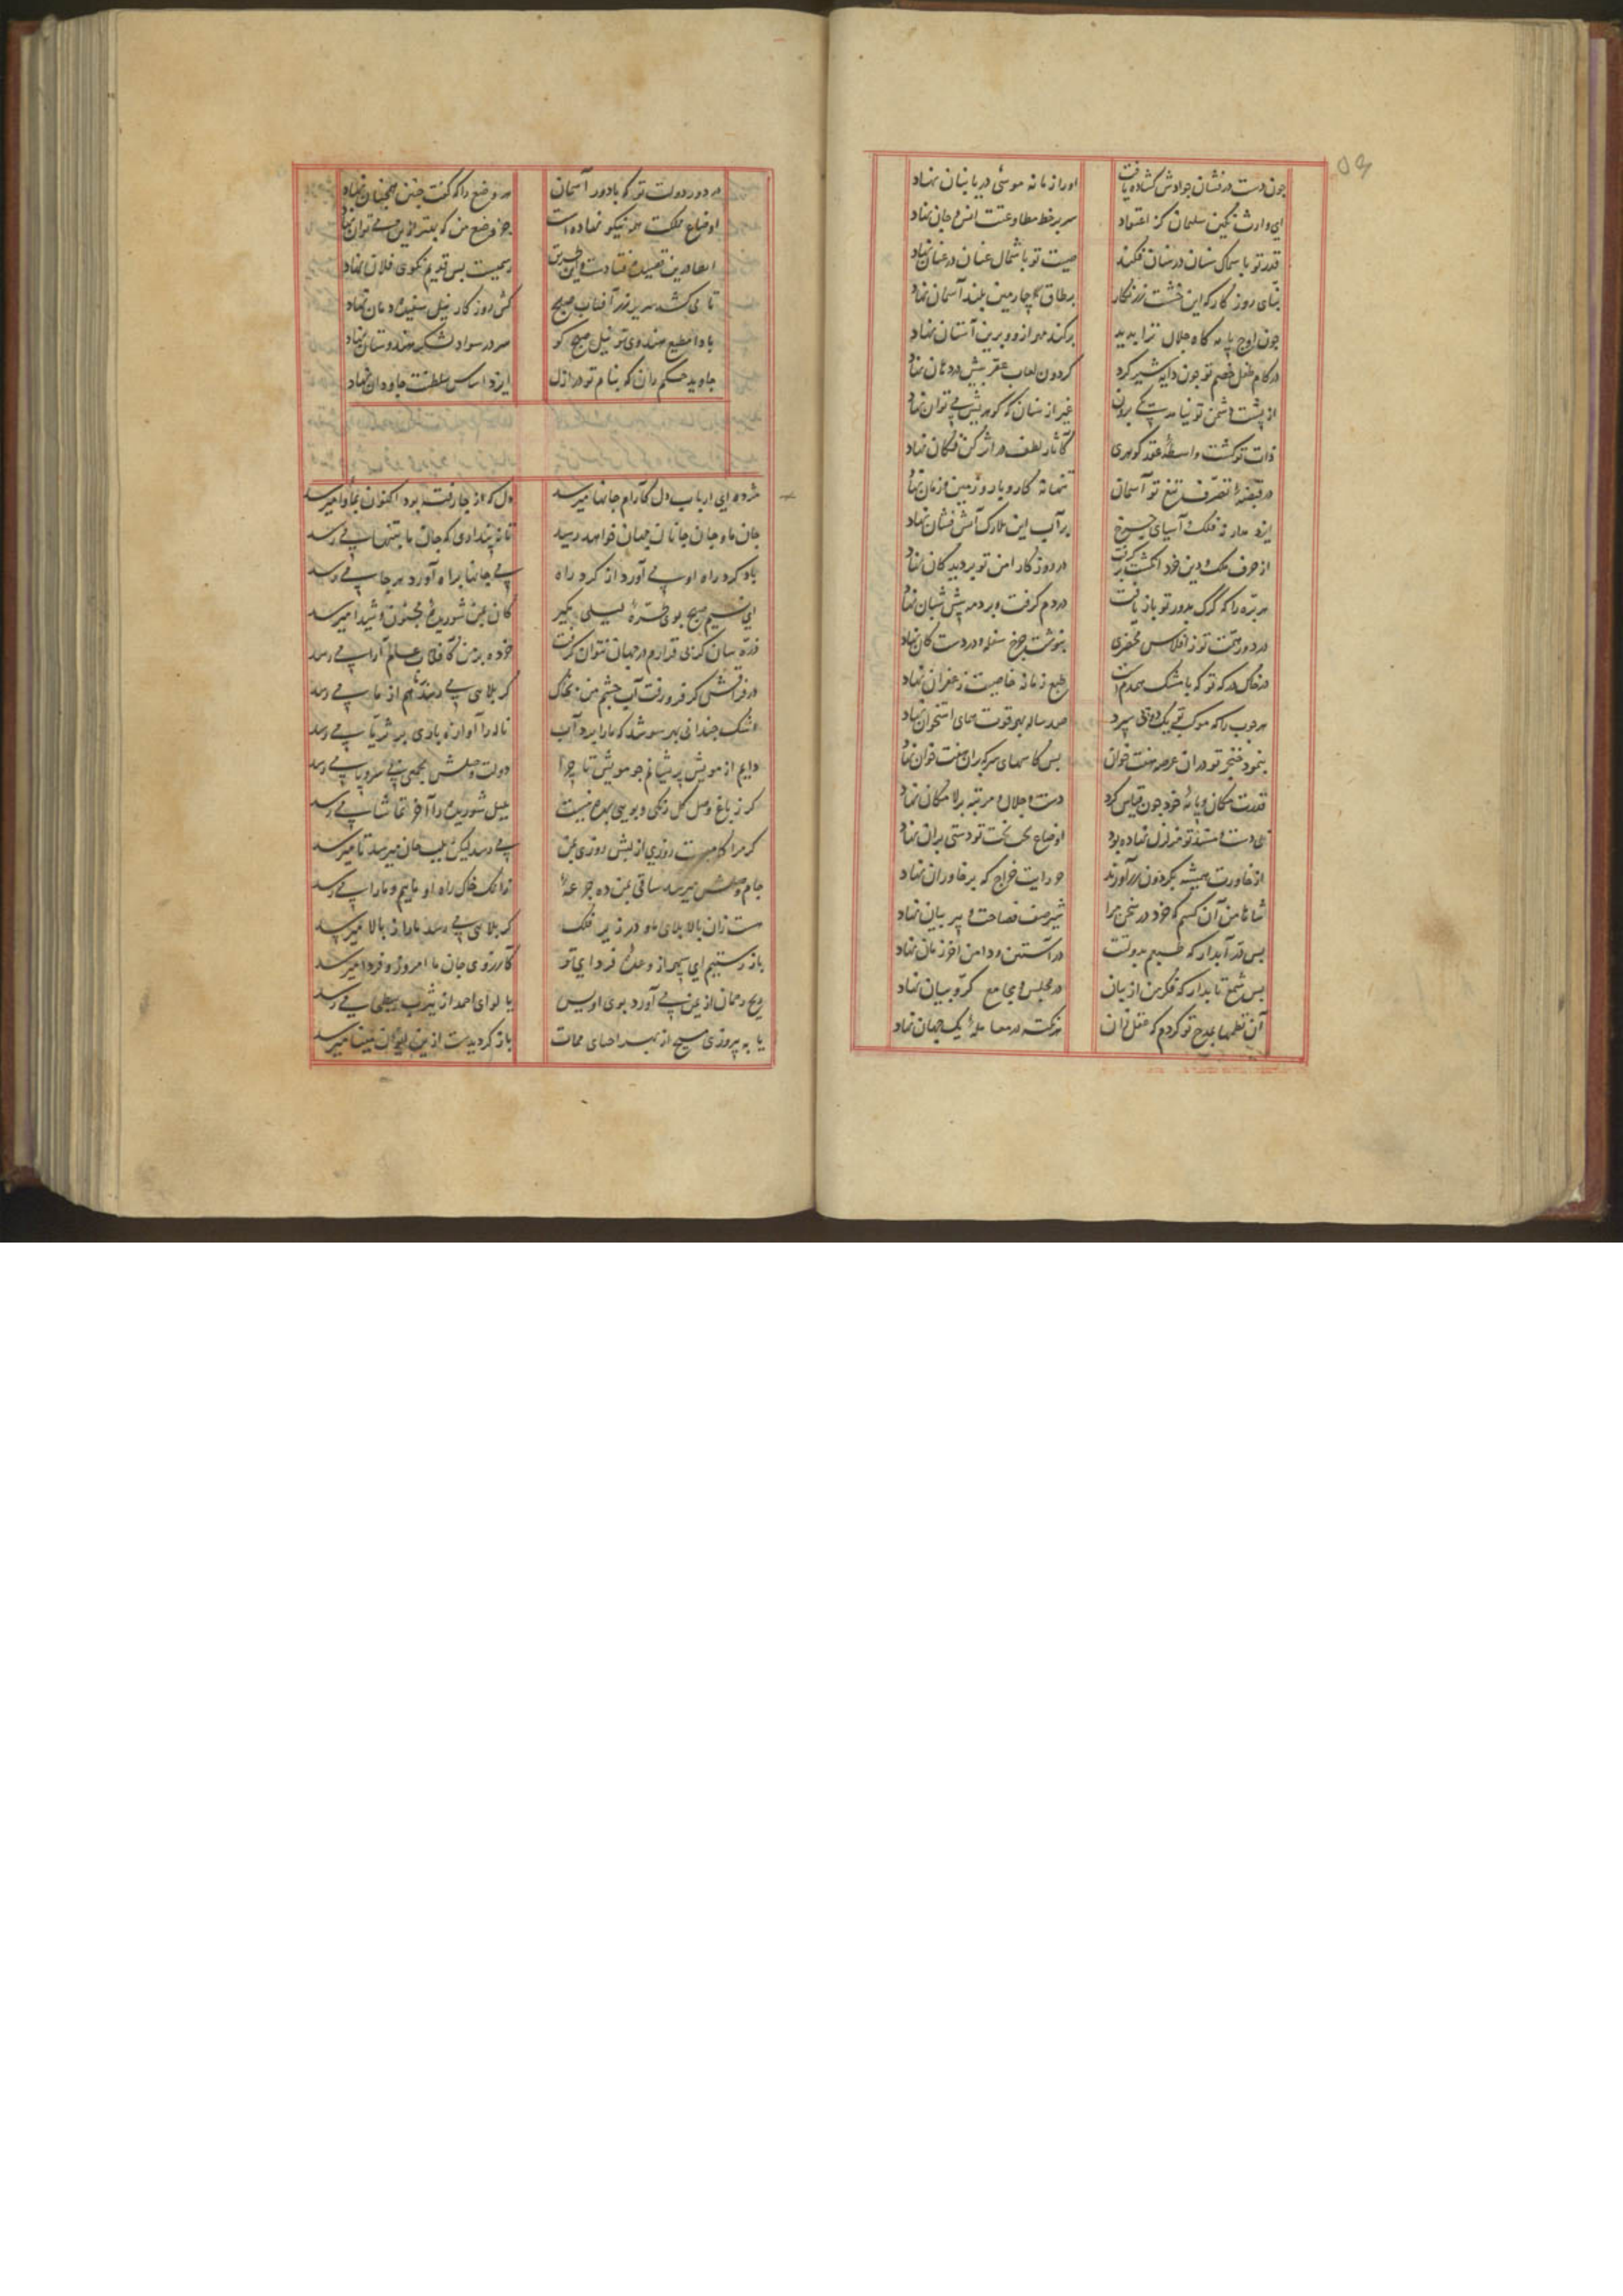 ۵۹
چون دست درفشان جوادش گشاده یافت اورا زمانه موسی دریا بنان نهاد
ای وارث نگین سلیمان کز اعتقاد سر بر خط مطاوعتت انس و جان نهاد
قدر تو با سماک سنان در سنان فکند صیت تو با شمال عنان در عنان نهاد
بنای روزگار که این خشت زرنگار بر طاق چارمین بلند آسمان نهاد
چون اوج پایه گاه جلال ترا بدید برکند مهر ازو و برین آستان نهاد
در کام طفل خصم تو چون دایه شیر کرد گردون لعاب عقربش در دهان نهاد
از پشت دشمن تو نیامد کسی برون غیر از سنان که گوهریش می توان نهاد
ذات تو گشت واسطه عقد گوهری کاثار لطف در اثر کن فکان نهاد
در قبضه تصرف تیغ تو آسمان کار و بار و زمین و زمان نهاد
ایزد مدار نه فلک آسیای چرخ بر آب این بلارک آتش فشان نهاد
از حرف ملک و دین خود انگشت برگرفت در روزگار امن تو بر دیدگان نهاد
هر بره را که گرگ بدور تو باز یافت در دم گرفت و برد و پیش شبان نهاد
در دور همتت تو ز افلاس محضری بنوشت چرخ سفله و در دست کان نهاد
در خاک درگه تو که با مشک همدم است طبع زمانه خاصیت زعفران نهاد
هر چوب را که موکب تو یک دو پی سپرد صد ساله بهر قوت همای استخوان نهاد
بنمود خنجر تو در آن عرصه هفت خوان بس کاسهای سر که بر آن هفت خوان نهاد
قدرت مکان و پایه خود چون قیاس کرد دست جلال و مرتبه بر لامکان نهاد
نی دست مسند تو منزل نهاده بود اوضاع تخت بخت تو دستی بر آن نهاد
از خاورت همیشه بگردون زر آورند رایت خراج که بر خاوران نهاد
شاها من آن کسم که خود در سخن مرا شیر صف فصاحت و پیر بیان نهاد
بس در آبدار که طبعم بدولتت در آستین و دامن آخر زمان نهاد
بس شمع تابدار که فکر من از بیان در مجلس و مجامع کروبیان نهاد
آن نظمها بمدح تو کردم که عقل از آن هر نکته در معامله یک جهان نهاد
در دور دولت تو که با دور آسمان هر وضع را که گفت چنین همچنان نهاد
اوضاع ملکت همه نیکو نهاده است جز وضع من که بهتر ازین می توان نهاد
انعام درین قصیده فتادست و این طریق رسمیست بس قدیم نکوی فلان نهاد
تا می کشد سریر زر آفتاب صبح کش روزگار نیل سفیده دمان نهاد
بادا مطیع هندوی تو نیل صبح کو سر در سواد لشکر هندوستان نهاد
جاوید حکم ران که بنام تو در ازل ایزد اساس سلطنت جاودان نهاد
مژده ای ارباب دل کارام جانها میرسد دل که از جا رفته بود اکنون بماوا میرسد
جان ما و جان جانان جهان خواهد رسید تا نه پنداری که جان ما بتنها می رسد
باد گرد راه او می آورد از گرد راه پی جانها براه آورد هر جا می رسد
ای نسیم صبح بوی طره لیلی بگیر کان بمن شوریده مجنون و شیدا میرسد
ذره سان گر بی قرارم در جهان نتوان گرفت خرده بر من کافتاب عالم آرا می رسد
در فراقش گر فرو رفت آب چشم من بخاک گر بلای می رسد هم از ما می رسد
اشک چندانی بهر سو شد که ما را برد آب ناله را آوازه باری بر ثریا می رسد
دایم از مویش پریشانم چو مویش تا چرا دولت وصلش بجمعی بی سر و پا می رسد
گر ز باغ وصل گل رنگی و بویی بهره نیست بلبل شوریده را آخر تماشا می رسد
گر مرا کامیست روزی از لبش روزی بمن می رسد لیکن بلب جان میرسد تا میرسد
جام وصلش میرسد ساقی بمن ده جرعه زانک خاک راه او ماییم و ما را می رسد
هست زان بالا بلای ما و در زیر فلک گر بلای می رسد ما را ز بالا میرسد
باز رستیم ای سپهر از وعده فردای تو کارزوی جان ما امروز و فردا میرسد
ریح رحمان از یمن می آورد بوی اویس یا لوای احمد از یثرب ببطحا می رسد
یا به پیروزی مسیح از بهر احیای ممات باز گردیدست ازین ایوان مینا میرسد